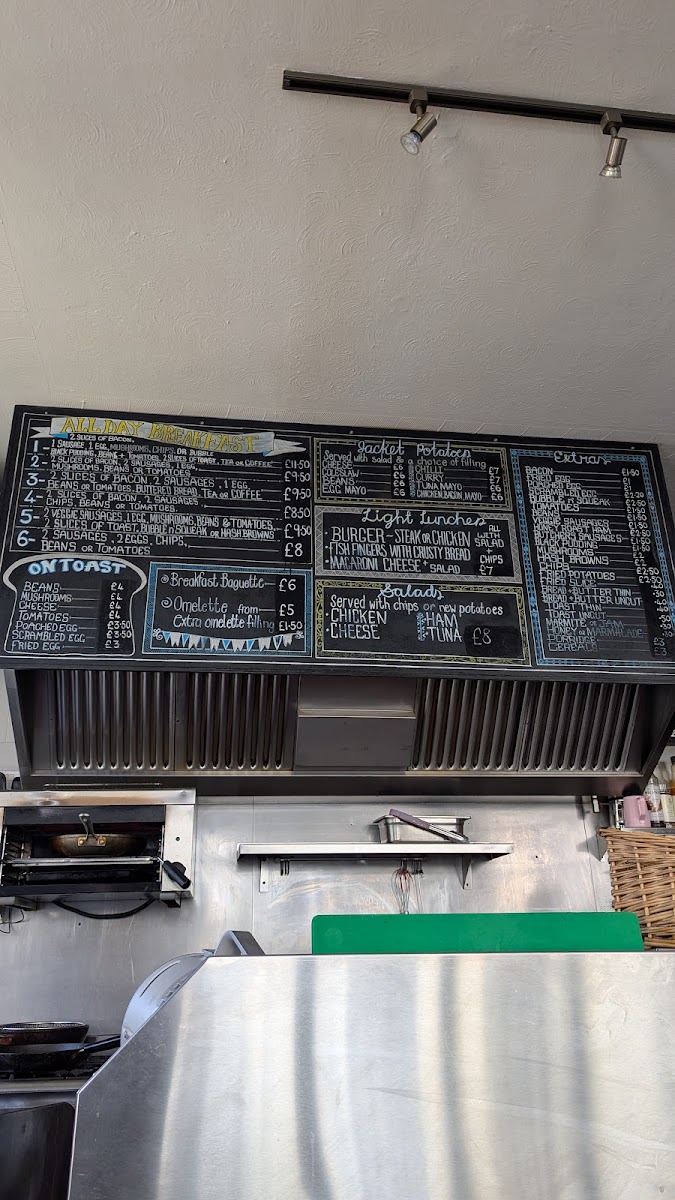 ALL DAY BREAKFAST
2 SLICES OF BACON,
1- 1 SAUSAGE, 1 EGG, MUSHROOMS, CHIPS, OR BUBBLE
BLACK PUDDING, BEANS + TOMATOES, 2 SLICES OF TOAST, TEA OR COFFEE £11•50
2- 2 SLICES OF BACON, 2 SAUSAGES, 1 EGG,
MUSHROOMS, BEANS OR TOMATOES £9•50
3- 2 SLICES OF BACON, 2 SAUSAGES, 1 EGG,
BEANS OR TOMATOES, BUTTERED BREAD, TEA OR COFFEE £9•50
4- 2 SLICES OF BACON, 2 SAUSAGES,
CHIPS, BEANS OR TOMATOES £8•50
5- 2 VEGGIE SAUSAGES, 1 EGG, MUSHROOMS, BEANS & TOMATOES,
2 SLICES OF TOAST, BUBBLE 'n' SQUEAK OR HASH BROWNS £9•50
6- 2 SAUSAGES, 2 EGGS, CHIPS,
BEANS OR TOMATOES £8
ON TOAST
BEANS £4
MUSHROOMS £4
CHEESE £4
TOMATOES £4
POACHED EGG £3•50
SCRAMBLED EGG £3•50
FRIED EGG £3
Breakfast Baguette £6
Omelette from £5
Extra omelette filling £1•50
Jacket Potatoes
Served with salad & a choice of filling
CHEESE £6
COLSLAW £6
BEANS £6
EGG MAYO £6
CHILLI £7
CURRY £7
TUNA MAYO £6
CHICKEN, BACON, MAYO £6
Light Lunches
BURGER ~ STEAK OR CHICKEN
FISH FINGERS WITH CRUSTY BREAD
MACARONI CHEESE + SALAD
ALL WITH SALAD + CHIPS £7
Salads
Served with chips or new potatoes
CHICKEN
CHEESE
HAM
TUNA
£8
Extras
BACON £1•50
FRIED EGG
POACHED EGG
SCRAMBLED EGG
BUBBLE 'n' SQUEAK
TOMATOES
BEANS
VEGGIE SAUSAGES
SAUSAGES
BLACK PUDDING
MUSHROOMS
HASH BROWNS
CHIPS
FRIED POTATOES
CHEESE
BREAD + BUTTER THIN
BREAD + BUTTER UNCUT
TOAST THIN
TOAST UNCUT
MARMITE or JAM
HONEY or MARMALADE
CEREALS